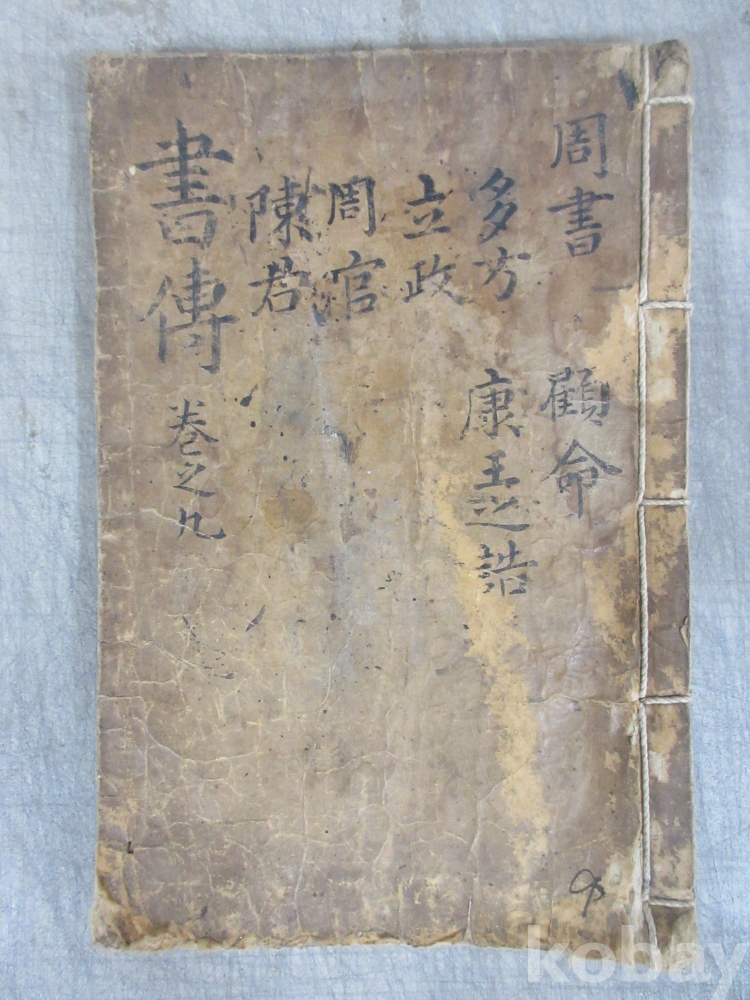 周書 顧命
多方 康王之誥
立政
周官
陳君
書傳 卷之九
kobay